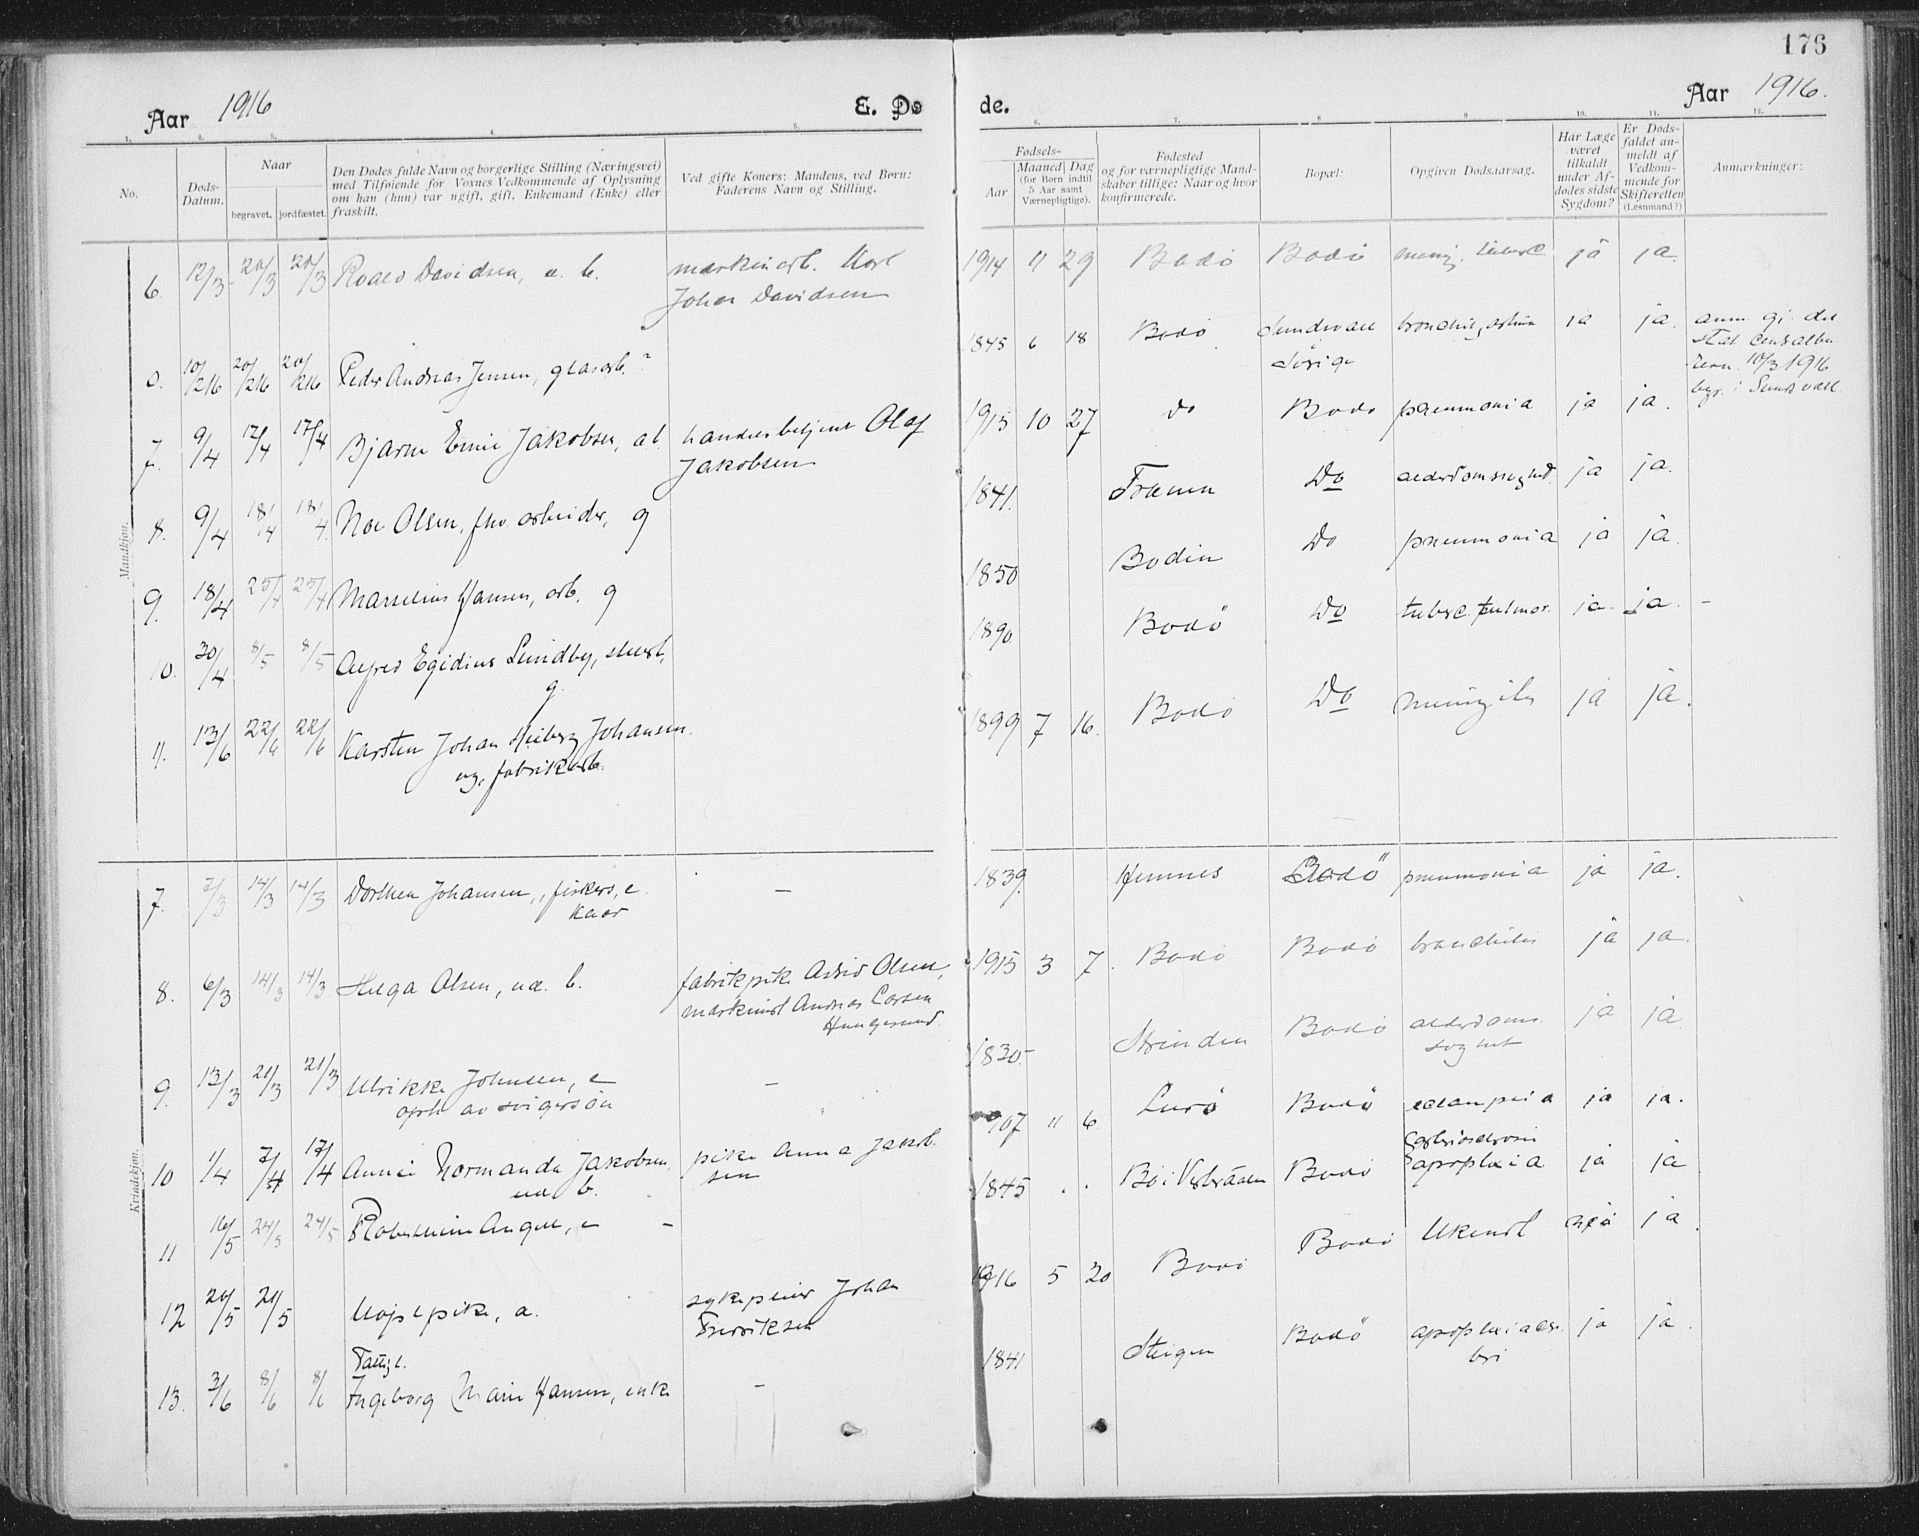 176
Aar 1916
E. Dø
de.
Aar 1916.
1. 2. 3. 4. 5. 6. 7. 8. 9. 10. 11. 12.
No.
Døds-
Datum.
Naar
begravet. jordfæstet.
Den Dødes fulde Navn og borgerlige Stilling (Næringsvei)
med Tilføiende for Voxnes Vedkommende af Oplysning
om han (hun) var ugift, gift, Enkemand (Enke) eller
fraskilt.
Ved gifte Koners: Mandens, ved Børn:
Faderens Navn og Stilling.
Fødsels-
Aar
Maaned Dag
(for Børn indtil
5 Aar samt
Værnepligtige).
Fødested
og for værnepligtige Mand-
skaber tillige: Naar og hvor
konfirmerede.
Bopæl:
Opgiven Dødsaarsag.
Har Læge
været
tilkaldt
under Af-
dødes sidste
Sygdom?
Er Døds-
faldet an-
meldt af
Vedkom-
mende for
Skifteretten
(Lensmand?)
Anmærkninger:
Mandkjøn.
6. 12/3 20/3 20/3 Davidsen, e. b. maskinarb. Karl 1914 11 29 Bodö Bodö mening. tuberc ja ja.
Johan Davidsen
0. 10/2 16 20/2 16 20/2 16 Peder Andreas Jensen, glasarb.? 1845 6 18 Bodö Sundsvall bronchit, astma ja ja. anm. gj. det
Sverige stat. centralbu
10/3 1916
begr. i Sundsvall.
7. 9/4 17/4 17/4 Bjarne Emil Jakobsen, e b. handelsbetjent Olaf 1915 10 27 do Bodö pneumonia ja ja.
Jakobsen
8. 9/4 18/4 18/4 Noe Olsen, fhv. arbeider, g 1841. Træna Do alderdomssvaghed ja ja.
9. 18/4 25/4 25/4 Marselius Hansen, arb. g 1850 Bodin Do pneumonia ja ja.
10. 30/4 8/5 8/5 Alfred Egidius Lundby, 1890. Bodö Do tuberc. pulmon. ja ja. -
g.
11. 13/6 22/6 22/6 Karsten Johan Heiberg Johansen. 1899 7 16. Bodö Do ja ja.
ug. fabrikarb.
Kvindekjøn.
7. 7/3 14/3 14/3 Dorthea Johansen, fiskers, e. - 1839. Hemnes Bodö pneumonia ja ja.
8. 6/3 14/3 14/3 Helga Olsen, u. e. b. fabrikpike Astrid Olsen, 1915 3 7. Bodö Bodö bronchitis ja ja.
maskinist Andreas Larsen
Haugesund.
9. 13/3 21/3 21/3 Ulrikke Johnsen, e - 1830- Strinden Bodö alderdoms ja ja
oph. av svigersön svaghet
10 1/4 7/4 17/4 Normanda Jakobsen pike Anna Jakob 1907 11 6 Lurö Bodö eclampsia ja ja.
u e b. sen
11 16/5 24/5 24/5 Angel, e - 1845 . . Bö i Vesteraalen Bodö apoplexia ja ja
12 20/5 21/5 Udöpt pike, e. sykepleier Johan 1916 5 20 Bodö Bodö Ukendt nei ja.
Fredriksen
Fattigl.
13. 3/6 8/6 8/6 Ingeborg Marie Hansen, enke - 1841 Steigen Bodö apoplexia cere ja ja.
bri